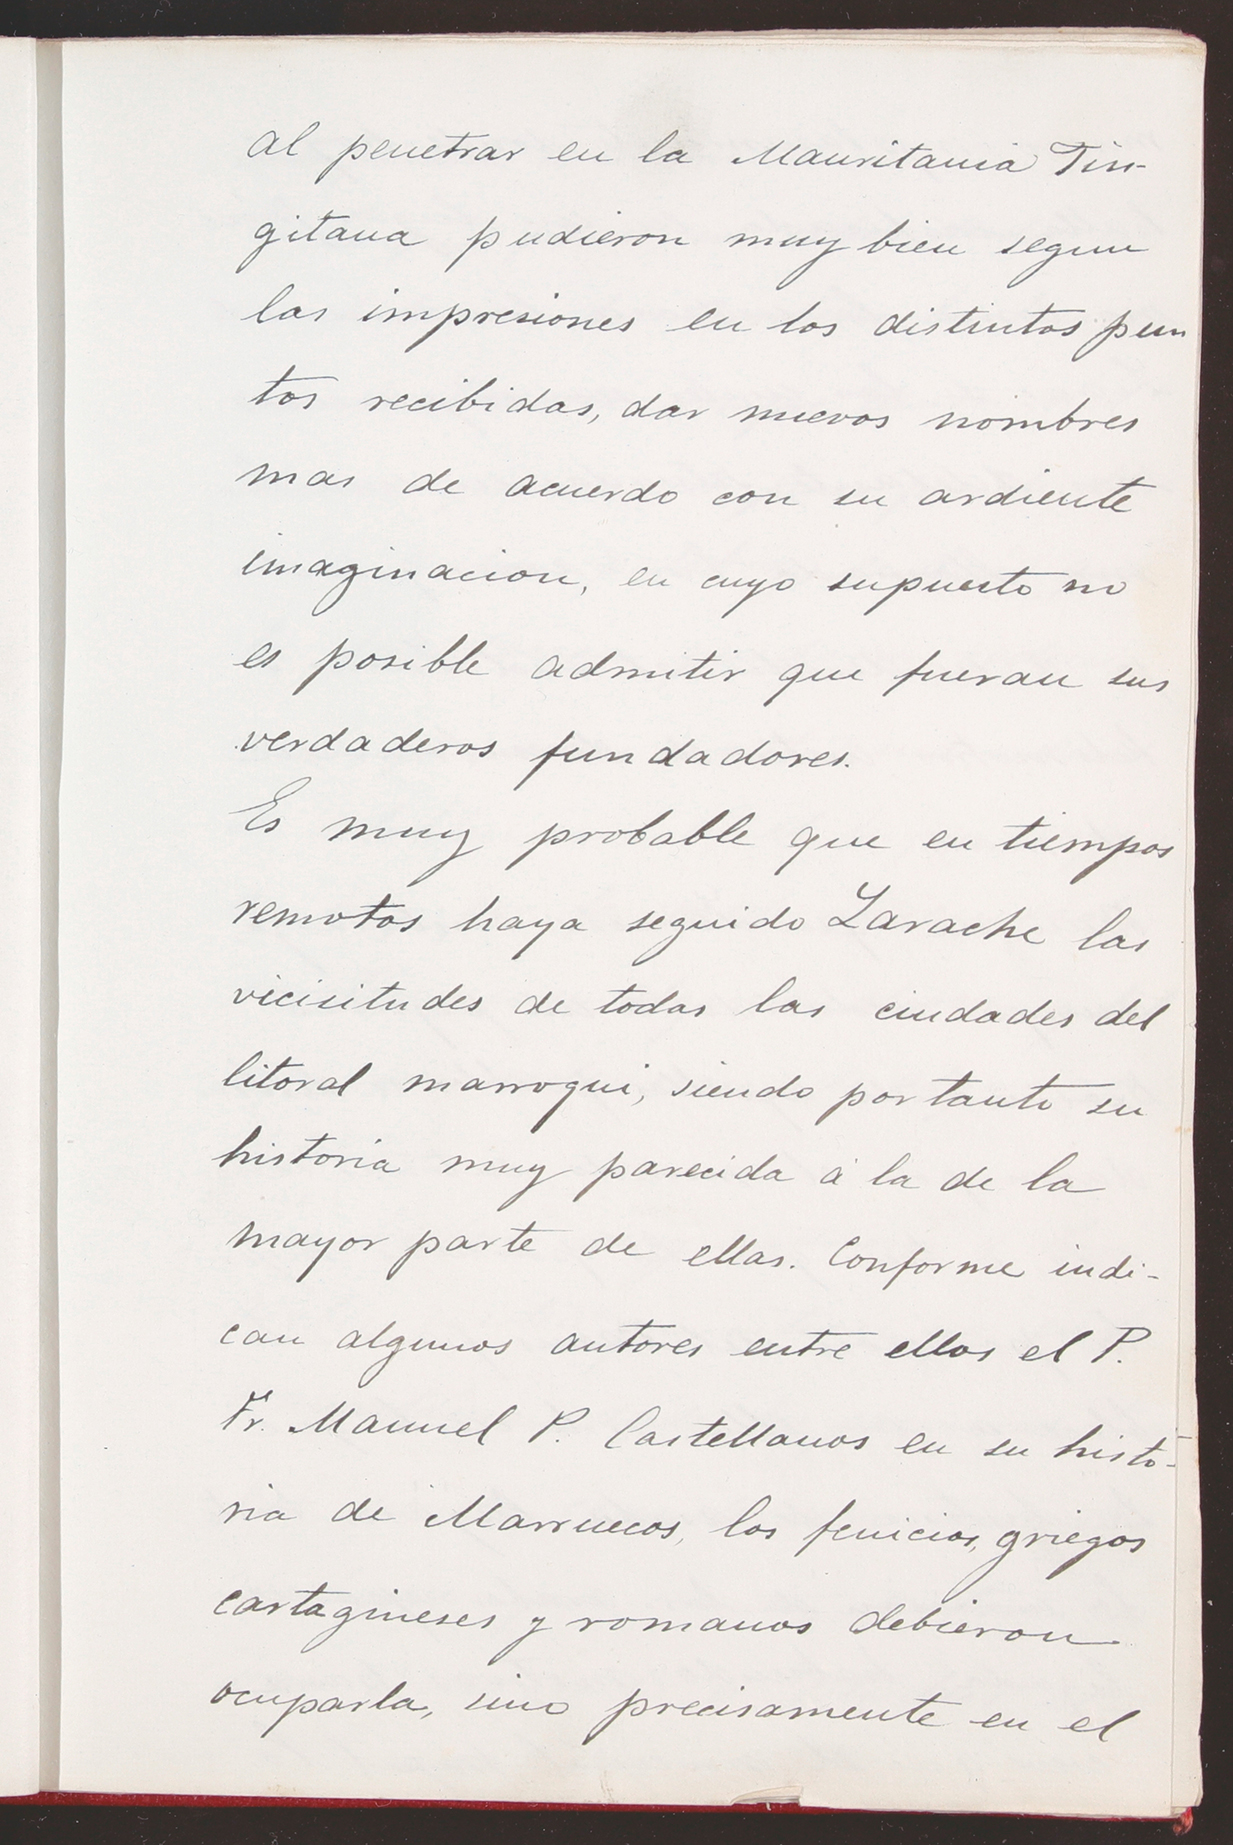 al penetrar en la Mauritania Tin-
gitana pudieron muy bien segun
las impresiones en los distintos pun
tos recibidas, dar nuevos nombres
mas de acuerdo con su ardiente
imaginacion, en cuyo supuesto no
es posible admitir que fueran sus
verdaderos fundadores.
Es muy probable que en tiempos
remotos haya seguido Larache las
vicisitudes de todas las ciudades del
litoral marroqui, siendo por tanto su
historia muy parecida á la de la
mayor parte de ellas. Conforme indi-
can algunos autores entre ellos el P.
Fr. Manuel P. Castellanos en su histo-
ria de Marruecos, los fenicios, griegos
cartagineses y romanos debieron
ocuparla, sino precisamente en el